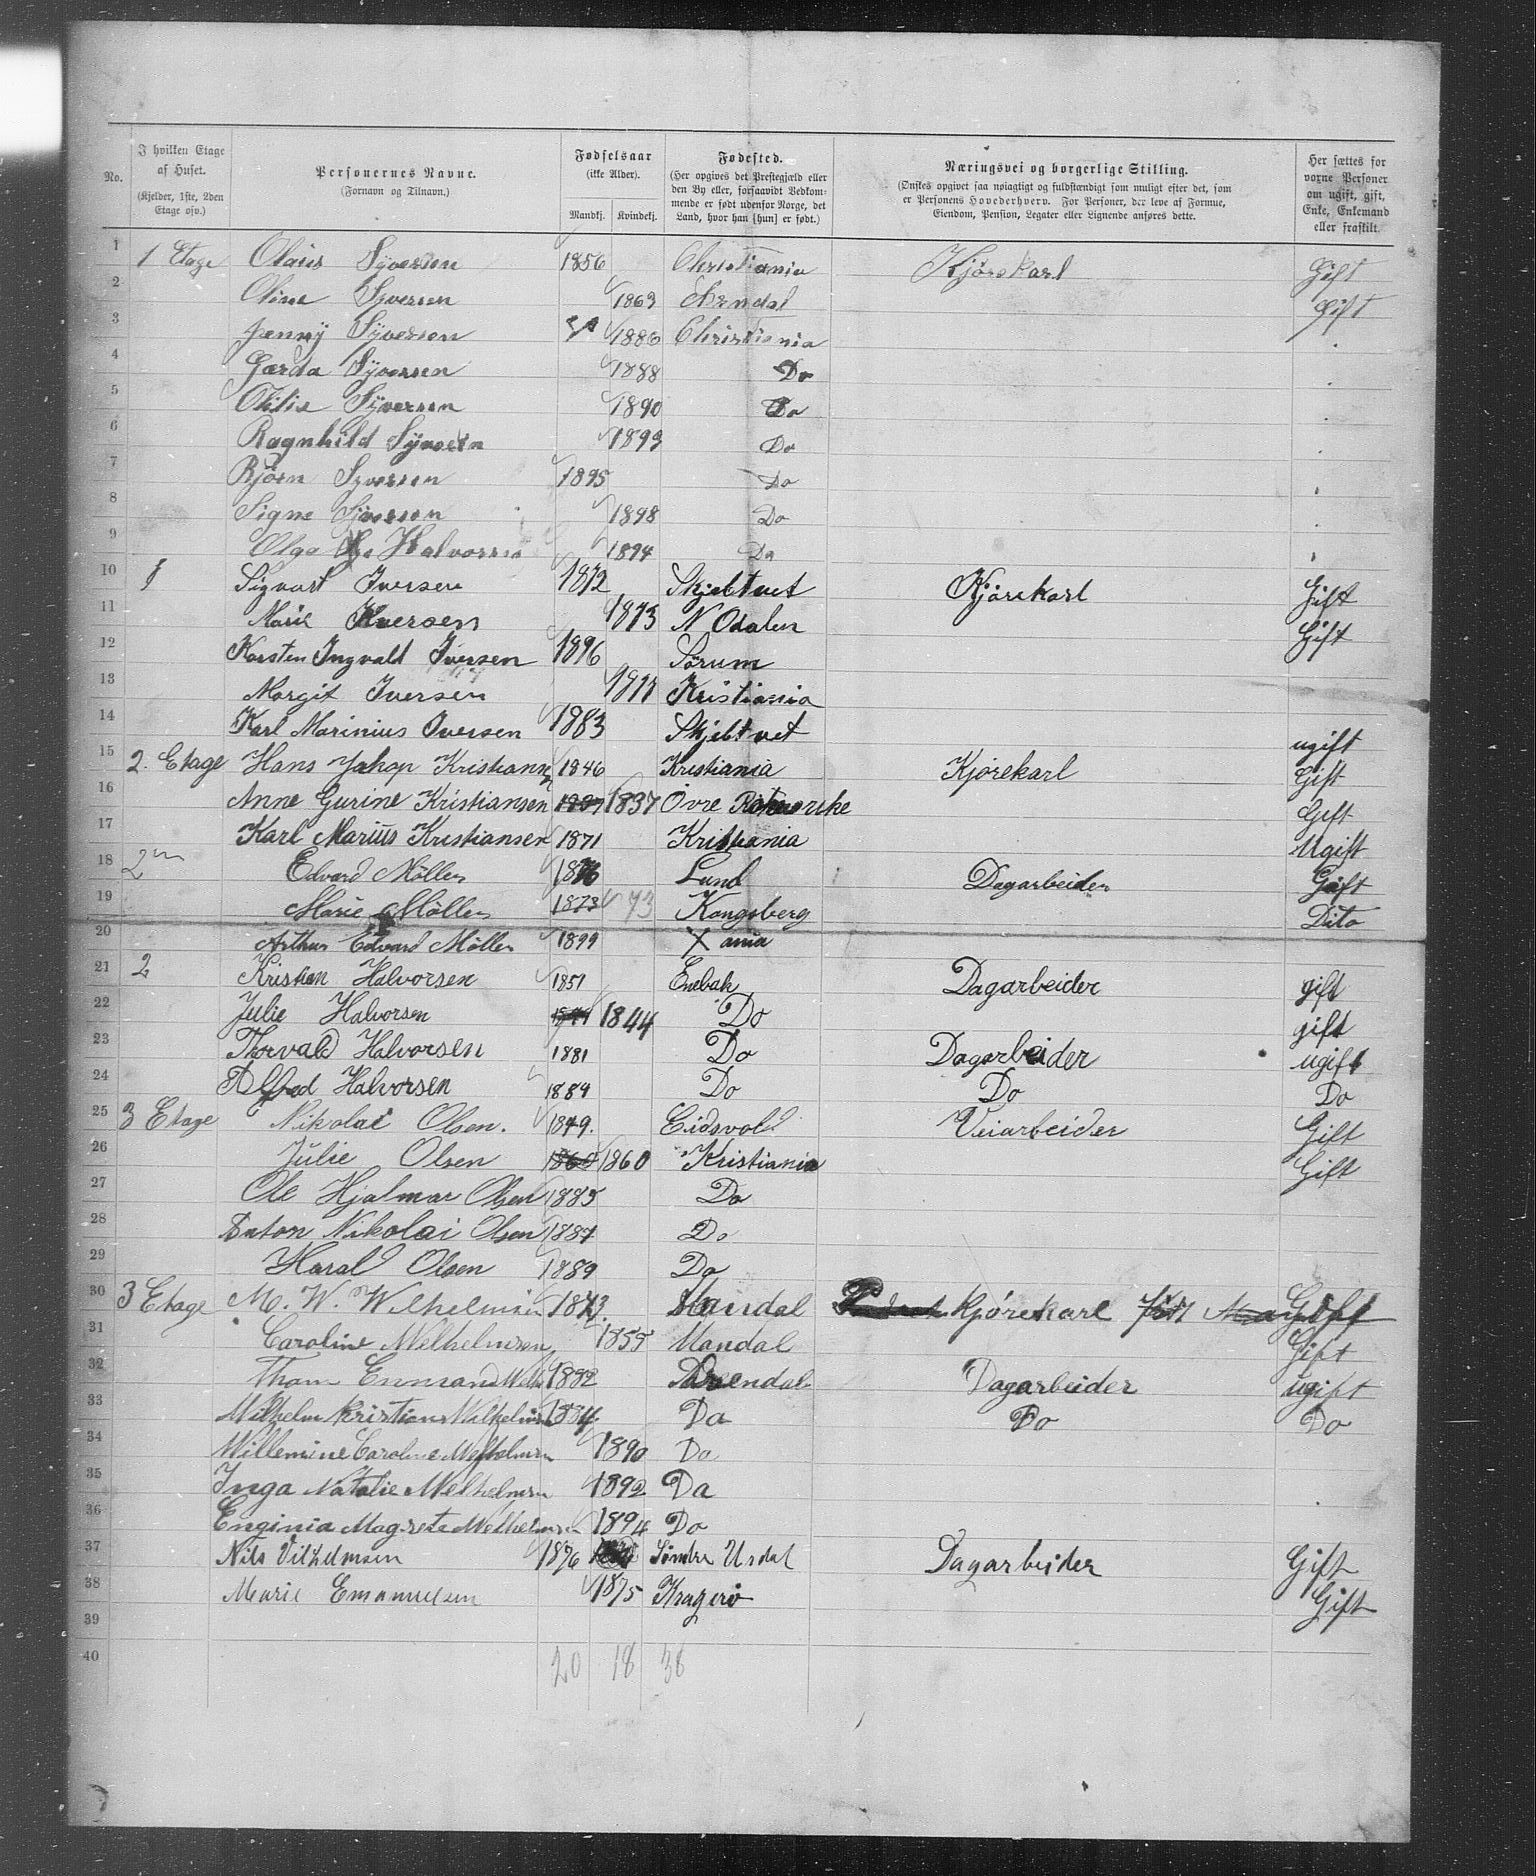 No.
I hvilken Etage af Huset. (Kjelder, 1ste, 2den Etage osv.)
Personernes Navne. (Fornavn og Tilnavn.)
Fødselsaar (ikke Alder). Mandkj. Kvindekj.
Fødested. (Her opgives det Prestegjæld eller den By eller, forsaavidt Vedkommende er født udenfor Norge, det Land, hvor han [hun] er født.)
Næringsvei og borgerlige Stilling. (Ønskes opgivet saa nøiagtigt og fuldstændigt som muligt efter det, som er Personens Hovederhverv. For Personer, der leve af Formue, Eiendom, Pension, Legater eller Lignende anføres dette.
Her sættes for vorne Personer om ugift, gift, Enke, Enkemand eller fraskilt.
1 1 Etage Olaus Syversen 1856 Christiania Kjørekarl Gift
2 Oline Syversen 1863 Arendal Gift
3 Jenny Syversen 1886 Christiania
4 Gerda Syversen 1888 Do
5 Otilie Syversen 1890 Do
6 Ragnhild Syversen 1893 Do
7 Bjørn Syversen 1895 Do
8 Signe Syversen 1898 Do
9 Olga Halvorsen 1894 Do
10 1 Sigvart Iversen 1872 Skjebtvet Kjørekarl Gift
11 Marie Iversen 1873 N Odalen Gift
12 Karsten Ingvald Iversen 1896 Sørum
13 Margit Iversen Kristiania
14 Karl Marinius Iversen 1883 Skjebtvet ugift
15 2. Etage Hans Jakop Kristiansen 1846 Kristiania Kjørekarl Gift
16 Anne Gurine Kristiansen 1837 1837 Øvre Gift
17 Karl Marius Kristiansen 1871 Kristiania Ugift
18 2 Edvard Møller 1876 Lund Dagarbeider Gift
19 Marie Møller 1873 73 Kongsberg Dito
20 Arthur Edvard Møller 1899 Xania
21 2 Kristian Halvorsen 1851 Enebak Dagarbeider gift
22 Julie Halvorsen 1844 Do gift
23 Thorvald Halvorsen 1881 Do Dagarbeider ugift
24 Alfred Halvorsen 1884 Do Do Do
25 3 Etage Nikolai Olsen. 1849. Eidsvold Veiarbeider Gift
26 Julie Olsen 1860 1860 Kristiania Gift
27 Ole Hjalmar Olsen 1885 Do
28 Anton Nikolai Olsen 1887 Do
29 Haral Olsen 1889 Do
30 3 Etage M. W. Wilhelmsen Mandal Kjørekarl Gift
31 Caroline Welhelmsen 1855 Mandal Gift
32 Thom 1882 Arendal Dagarbeider ugift
33 Wilhelm Kristian Wilhelmsen 1884 Do Do Do
34 Willemine Caroline Welhelmsen 1890 Do
35 Inga Natalie Welhelmsen 1892 Do
36 Enginia Magrete Welhelmsen 1894 Do
37 Nils Vilhelmsen 1876 Søndre Dagarbeider Gift
38 Marie Emanuelsen 1875 Kragerø Gift
39
40 20 18 38